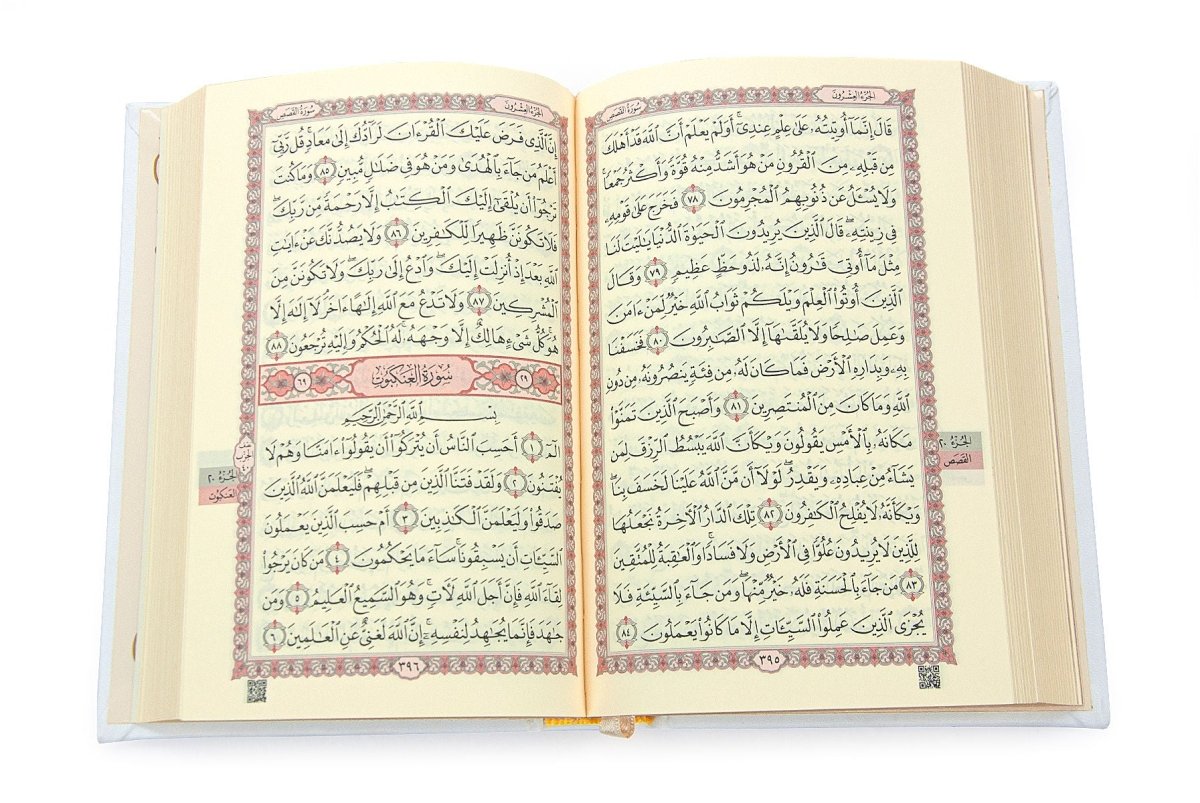 الجزء العشرون
سورة القصص
قَالَ إِنَّمَآ أُوتِيتُهُۥ عَلَىٰ عِلْمٍ عِندِىٓۚ أَوَلَمْ يَعْلَمْ أَنَّ ٱللَّهَ قَدْ أَهْلَكَ
مِن قَبْلِهِۦ مِنَ ٱلْقُرُونِ مَنْ هُوَ أَشَدُّ مِنْهُ قُوَّةً وَأَكْثَرُ جَمْعًاۚ
وَلَا يُسْـَٔلُ عَن ذُنُوبِهِمُ ٱلْمُجْرِمُونَ ٧٨ فَخَرَجَ عَلَىٰ قَوْمِهِۦ
فِى زِينَتِهِۦۖ قَالَ ٱلَّذِينَ يُرِيدُونَ ٱلْحَيَوٰةَ ٱلدُّنْيَا يَـٰلَيْتَ لَنَا
مِثْلَ مَآ أُوتِىَ قَـٰرُونُ إِنَّهُۥ لَذُو حَظٍّ عَظِيمٍ ٧٩ وَقَالَ
ٱلَّذِينَ أُوتُوا۟ ٱلْعِلْمَ وَيْلَكُمْ ثَوَابُ ٱللَّهِ خَيْرٌ لِّمَنْ ءَامَنَ
وَعَمِلَ صَـٰلِحًا وَلَا يُلَقَّىٰهَآ إِلَّا ٱلصَّـٰبِرُونَ ٨٠ فَخَسَفْنَا
بِهِۦ وَبِدَارِهِ ٱلْأَرْضَ فَمَا كَانَ لَهُۥ مِن فِئَةٍ يَنصُرُونَهُۥ مِن دُونِ
ٱللَّهِ وَمَا كَانَ مِنَ ٱلْمُنتَصِرِينَ ٨١ وَأَصْبَحَ ٱلَّذِينَ تَمَنَّوْا۟
مَكَانَهُۥ بِٱلْأَمْسِ يَقُولُونَ وَيْكَأَنَّ ٱللَّهَ يَبْسُطُ ٱلرِّزْقَ لِمَن
يَشَآءُ مِنْ عِبَادِهِۦ وَيَقْدِرُۖ لَوْلَآ أَن مَّنَّ ٱللَّهُ عَلَيْنَا لَخَسَفَ بِنَاۖ
وَيْكَأَنَّهُۥ لَا يُفْلِحُ ٱلْكَـٰفِرُونَ ٨٢ تِلْكَ ٱلدَّارُ ٱلْـَٔاخِرَةُ نَجْعَلُهَا
لِلَّذِينَ لَا يُرِيدُونَ عُلُوًّا فِى ٱلْأَرْضِ وَلَا فَسَادًاۚ وَٱلْعَـٰقِبَةُ لِلْمُتَّقِينَ
٨٣ مَن جَآءَ بِٱلْحَسَنَةِ فَلَهُۥ خَيْرٌ مِّنْهَاۖ وَمَن جَآءَ بِٱلسَّيِّئَةِ فَلَا
يُجْزَى ٱلَّذِينَ عَمِلُوا۟ ٱلسَّيِّـَٔاتِ إِلَّا مَا كَانُوا۟ يَعْمَلُونَ ٨٤
٣٩٥
الجزء ٢٠
القصص
الجزء العشرون
سورة القصص
إِنَّ ٱلَّذِى فَرَضَ عَلَيْكَ ٱلْقُرْءَانَ لَرَآدُّكَ إِلَىٰ مَعَادٍۚ قُل رَّبِّىٓ
أَعْلَمُ مَن جَآءَ بِٱلْهُدَىٰ وَمَنْ هُوَ فِى ضَلَـٰلٍ مُّبِينٍ ٨٥ وَمَا كُنتَ
تَرْجُوٓا۟ أَن يُلْقَىٰٓ إِلَيْكَ ٱلْكِتَـٰبُ إِلَّا رَحْمَةً مِّن رَّبِّكَۖ
فَلَا تَكُونَنَّ ظَهِيرًا لِّلْكَـٰفِرِينَ ٨٦ وَلَا يَصُدُّنَّكَ عَنْ ءَايَـٰتِ
ٱللَّهِ بَعْدَ إِذْ أُنزِلَتْ إِلَيْكَۖ وَٱدْعُ إِلَىٰ رَبِّكَۖ وَلَا تَكُونَنَّ مِنَ
ٱلْمُشْرِكِينَ ٨٧ وَلَا تَدْعُ مَعَ ٱللَّهِ إِلَـٰهًا ءَاخَرَۘ لَآ إِلَـٰهَ إِلَّا
هُوَۚ كُلُّ شَىْءٍ هَالِكٌ إِلَّا وَجْهَهُۥۚ لَهُ ٱلْحُكْمُ وَإِلَيْهِ تُرْجَعُونَ ٨٨
٢٩ سُورَةُ العَنكَبُوتِ ٦٩
بِسْمِ ٱللَّهِ ٱلرَّحْمَـٰنِ ٱلرَّحِيمِ
الٓمٓ ١ أَحَسِبَ ٱلنَّاسُ أَن يُتْرَكُوٓا۟ أَن يَقُولُوٓا۟ ءَامَنَّا وَهُمْ لَا
يُفْتَنُونَ ٢ وَلَقَدْ فَتَنَّا ٱلَّذِينَ مِن قَبْلِهِمْۖ فَلَيَعْلَمَنَّ ٱللَّهُ ٱلَّذِينَ
صَدَقُوا۟ وَلَيَعْلَمَنَّ ٱلْكَـٰذِبِينَ ٣ أَمْ حَسِبَ ٱلَّذِينَ يَعْمَلُونَ
ٱلسَّيِّـَٔاتِ أَن يَسْبِقُونَاۚ سَآءَ مَا يَحْكُمُونَ ٤ مَن كَانَ يَرْجُوا۟
لِقَآءَ ٱللَّهِ فَإِنَّ أَجَلَ ٱللَّهِ لَـَٔاتٍۚ وَهُوَ ٱلسَّمِيعُ ٱلْعَلِيمُ ٥ وَمَن
جَـٰهَدَ فَإِنَّمَا يُجَـٰهِدُ لِنَفْسِهِۦٓۚ إِنَّ ٱللَّهَ لَغَنِىٌّ عَنِ ٱلْعَـٰلَمِينَ ٦
٣٩٦
الحزب
٤٠
الجزء ٢٠
العنكبوت